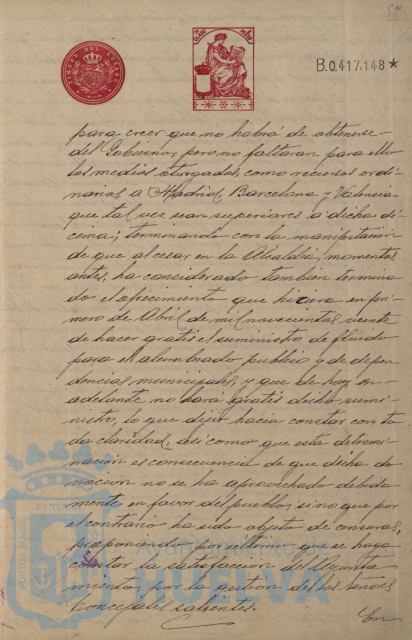 B.0.417,148*
para creer que no habrá de obtenerse
del Gobierno, pero no faltaran para ello
los medios otorgados, como recursos ordi-
narios, a Madrid, Barcelona y Valencia
que tal vez sean superiores a dicha dé-
cima; terminando con la manifestación
de que al cesar en la Alcaldia, momentos
antes, ha considerado tambien termina-
do el ofrecimiento que hiciera en pri-
mero de Abril de mil novecientos veinte
de hacer gratis el suministro de fluido
para el alumbrado publico y de depen-
dencias municipales, y que de hoy en
adelante no hará gratis dicho sumi-
nistro, lo que dijo hacia constar con to-
da claridad, asi como que esta determi-
nación es consecuencia de que dicha do-
nacion no se ha aprovechado debida-
mente en favor del pueblo, sino que por
el contrario ha sido objeto de censuras,
proponiendo por ultimo que se haga
constar la satisfaccion del Ayunta-
miento por la gestion de los Señores
Concejales salientes.
En
Ayuntamiento de
HUELVA